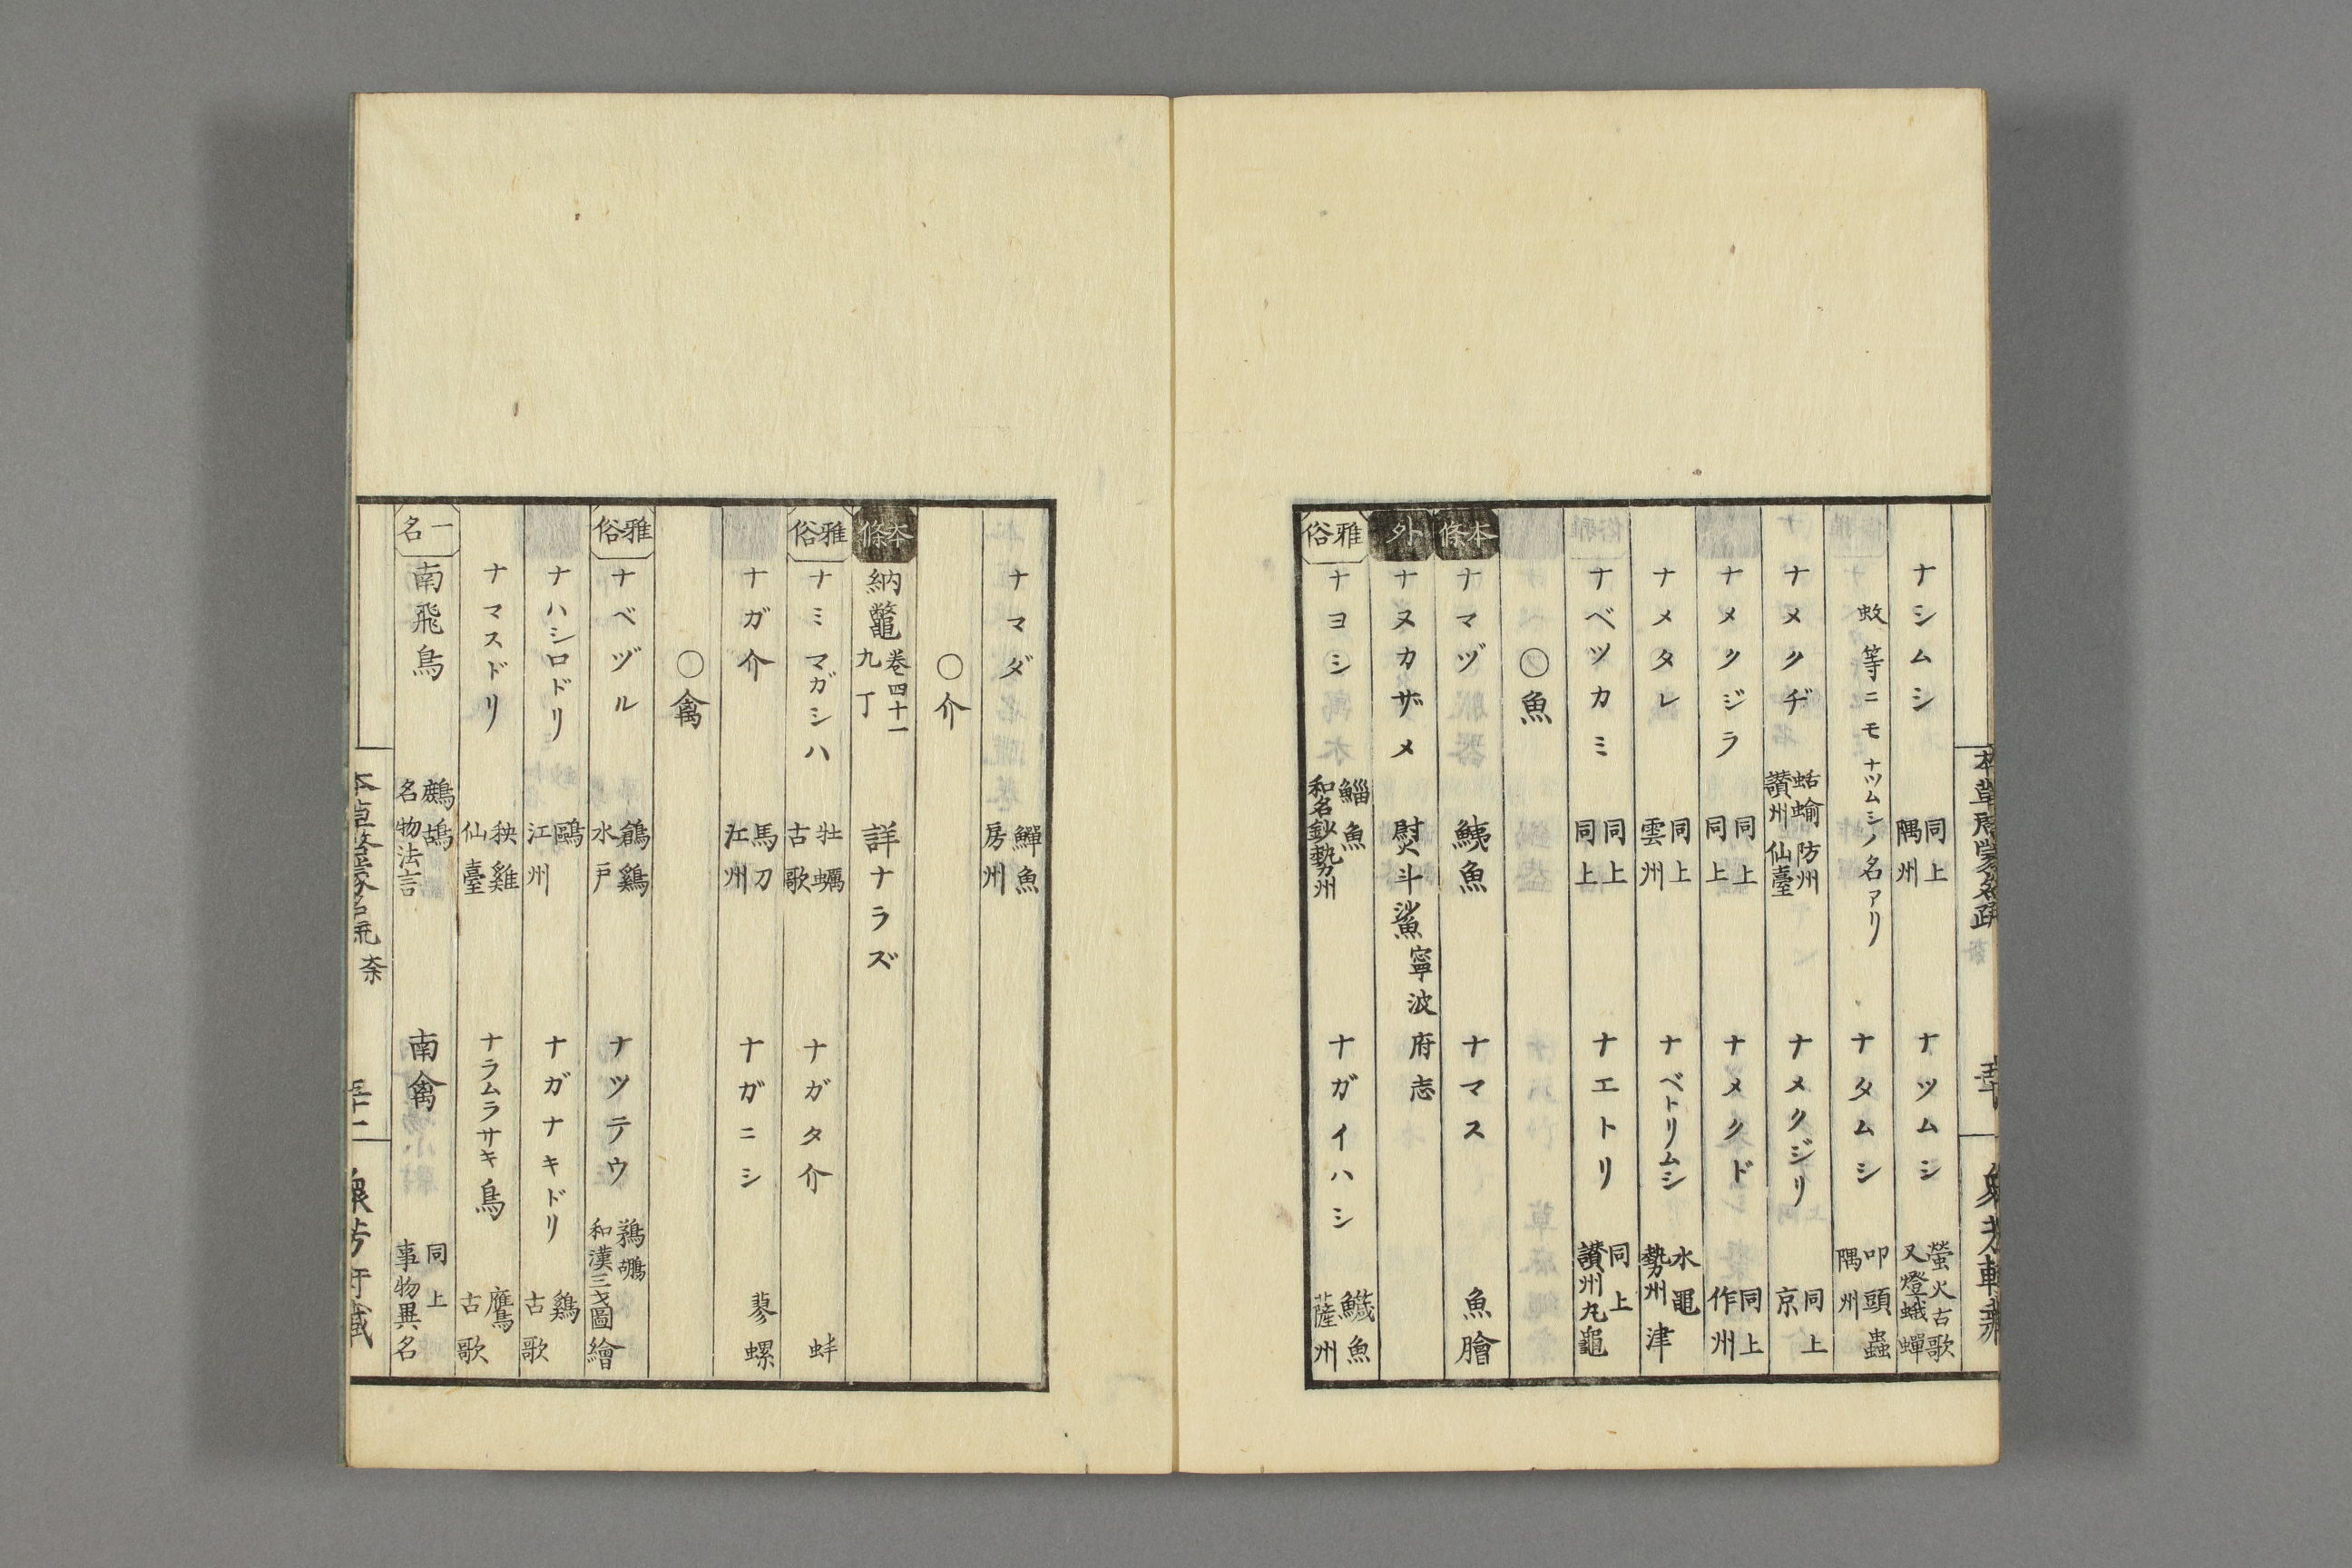 ナシムシ 同上 隅州 ナツムシ 螢火古歌 又燈蛾蟬
蚊等ニモナツムシノ名アリ ナタムシ 叩頭蟲 隅州
ナメクヂ 蛞蝓防州 讃州仙臺 ナメクジリ 同上 京
ナメクジラ 同上 同上 ナメクド 同上 作州
ナメタレ 同上 雲州 ナベトリムシ 水黽 勢州津
ナベツカミ 同上 同上 ナエトリ 同上 讃州丸龜
〇魚
本條 ナマヅ 鮧魚 ナマス 魚膾
外 ナヌカザメ 熨斗鯊 寧波府志
雅俗 ナヨシ 鯔魚 和名鈔勢州 ナガイハシ 鱵魚 薩州
ナマダ 鱓魚 房州
〇介
本條 納鼈 卷四十一九丁 詳ナラズ
雅俗 ナミマガシハ 牡蠣 古歌 ナガタ介 蚌
ナガ介 馬刀 江州 ナガニシ 蓼螺
〇禽
雅俗 ナベヅル 鶬鷄 水戸 ナツテウ 鵜鶘 和漢三才圖繪
ナハシロドリ 鷗 江州 ナガナキドリ 鷄 古歌
ナマスドリ 秧雞 仙臺 ナラムラサキ鳥 鷹 古歌
一名 南飛鳥 鷓鴣 名物法言 南禽 同上 事物異名
奈